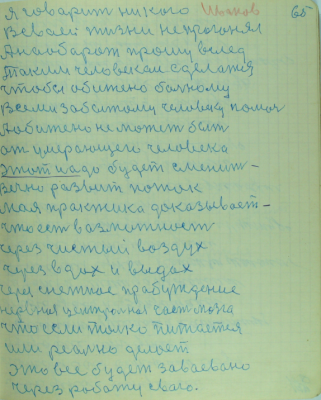 Я говарит никого Иванов 65
В своей жизни не прогонял
А наобарот прошу вслед
Таким человекам сделатся
чтобы обижено болному
Всеми забытому человеку помоч
А обижено не может быт
от умерающего человека
Этот надо будет сменит –
Вечно развит поток
Мая практика доказывает –
что ест вазможност
через чистый воздух
через вдох и выдах
чем снежное прабуждение
нервная центральная част мозга
что если толко питается
или реално делает
Это все будет заваевано
через работу сваю.